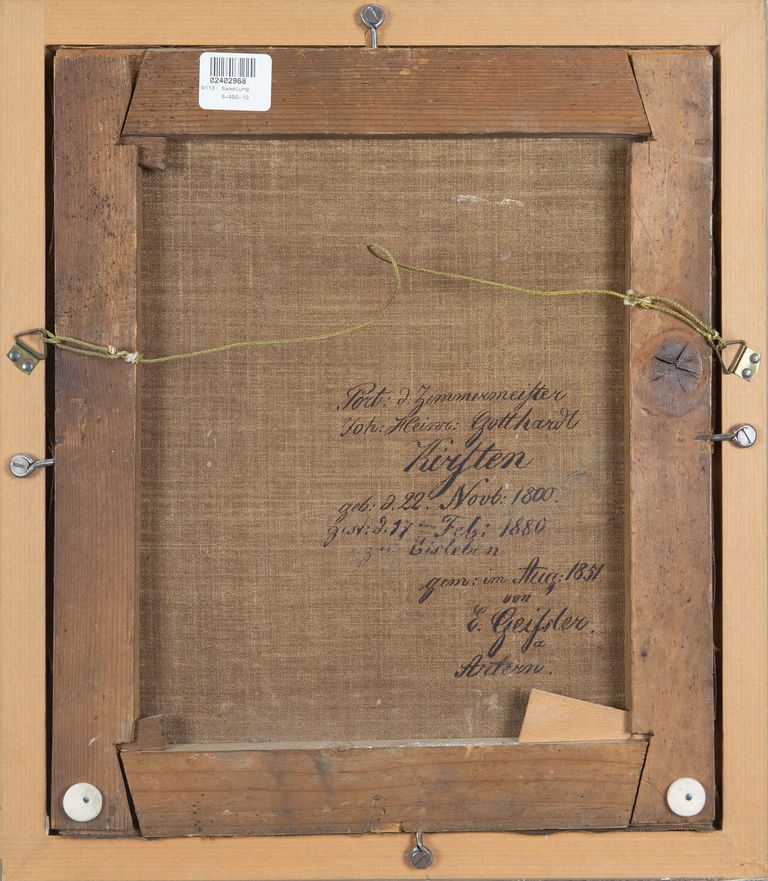 02402968
A113 Sammlung
S-450-10
Port: d. Zimmermeister
Joh: Heinr: Gotthardt
Kirsten
geb: d. 22. Novb: 1800.
gest: d. 17 Feb: 1880
zu Eisleben
gem: im Aug: 1851.
von
E. Geißler.
a
Artern.